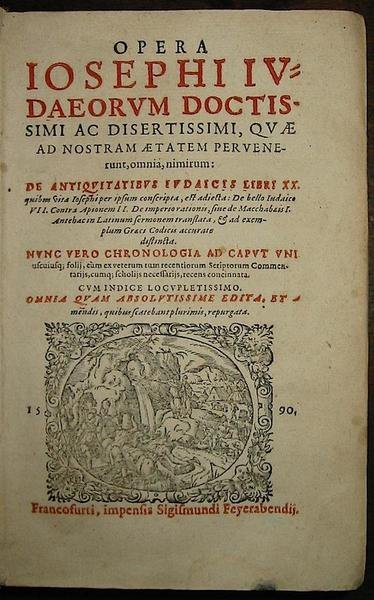 OPERA
IOSEPHI IV=
DAEORVM DOCTIS-
SIMI AC DISERTISSIMI, QVÆ
AD NOSTRAM ÆTATEM PERVENE-
runt, omnia, nimirum:
DE ANTIQVITATIBVS IVDAICIS LIBRI XX.
quibus Vita Iosephi per ipsum conscripta, est adiecta: De bello Iudaico
VII. Contra Apionem II. De imperio rationis, siue de Macchabæis I.
Antehac in Latinum sermonem translata, & ad exem-
plum Græci Codicis accurate
distincta.
NVNC VERO CHRONOLOGIA AD CAPVT VNI
uscuiusq; folij, cùm ex veterum tum recentiorum Scriptorum Commen-
tarijs, cumq; scholijs necessarijs, recens concinnata.
CVM INDICE LOCVPLETISSIMO.
OMNIA QVAM ABSOLVTISSIME EDITA, ET A
mendis, quibus scatebant plurimis, repurgata.
15 90,
Francofurti, impensis Sigismundi Feyerabendij.